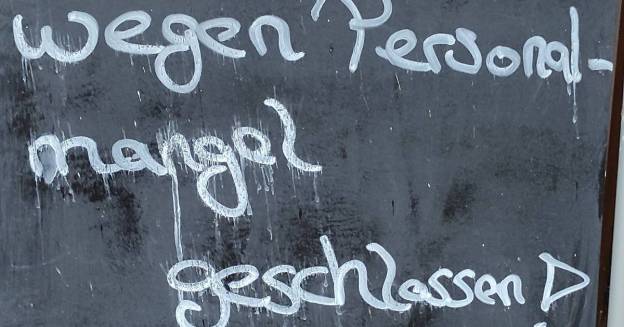 wegen Personal-
mangel
geschlossen